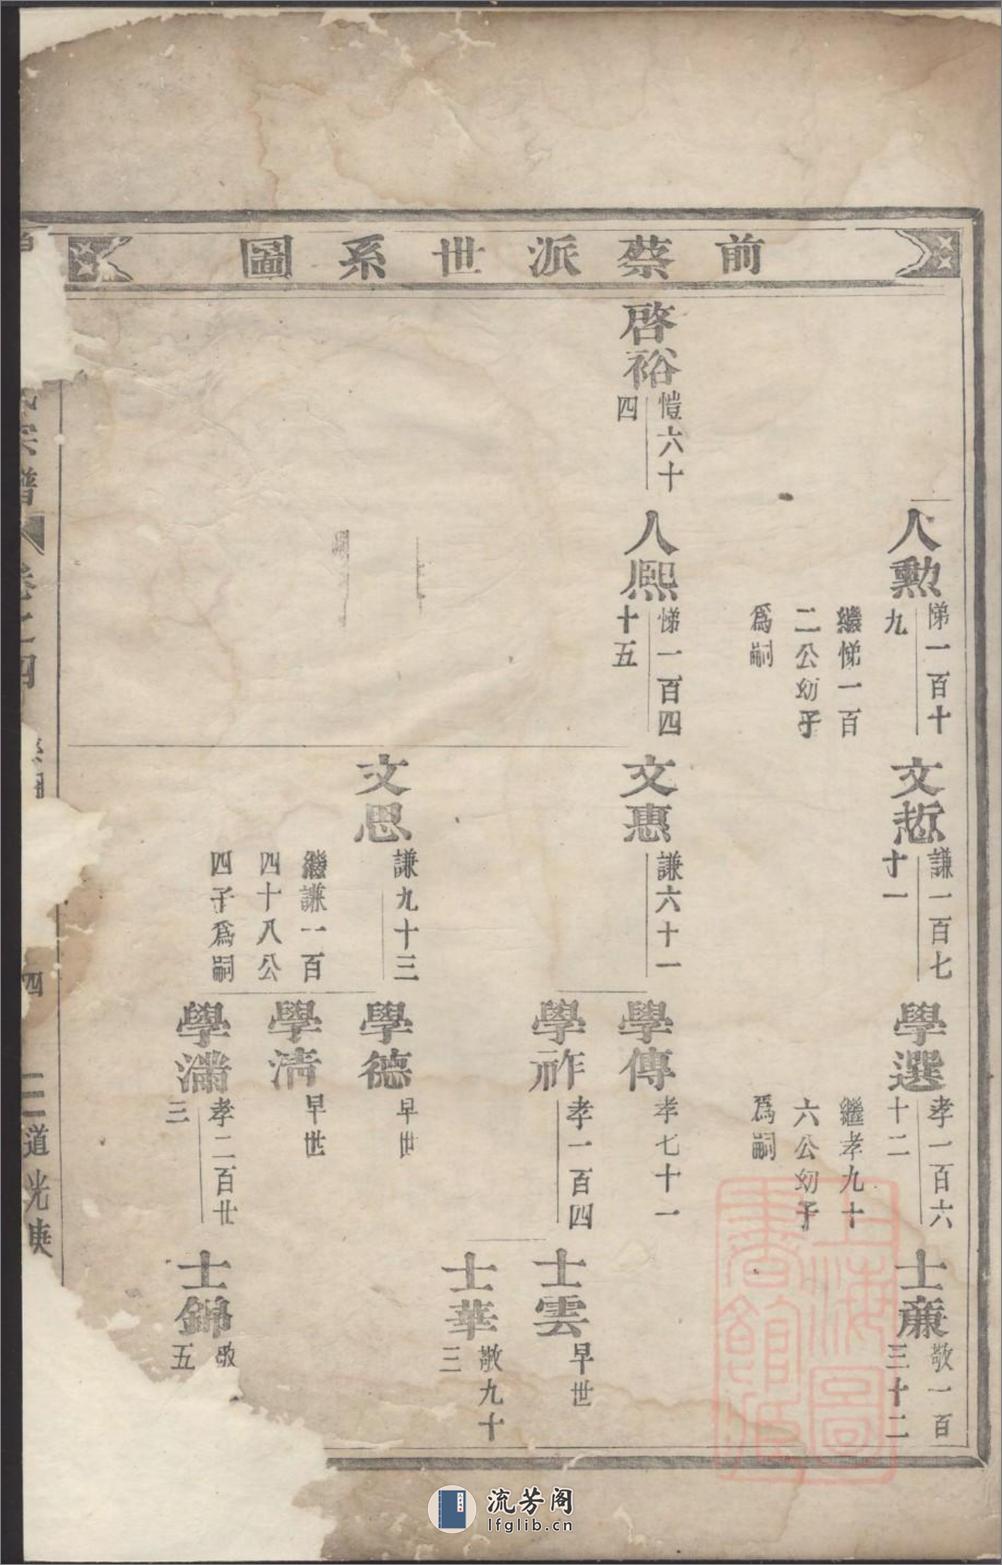 前蔡派世系圖
人勲
悌一百十
九
繼悌一百
二公幼子
爲嗣
文哲
謙一百七
十一
學選
孝一百六
十二
繼孝九十
六公幼子
爲嗣
士亷
敬一百
三十二
啓裕
愷六十
四
人熙
悌一百四
十五
文惠
謙六十一
學傳
孝七十一
學祚
孝一百四
士雲
早世
士華
敬九十
三
文思
謙九十三
繼謙一百
四十八公
四子爲嗣
學德
早世
學淸
早世
學潚
孝二百廿
三
士錦
敬
五
宗譜
卷之四
四
二
道光庚
上海圖
書館藏
流芳阁
lfglib.cn